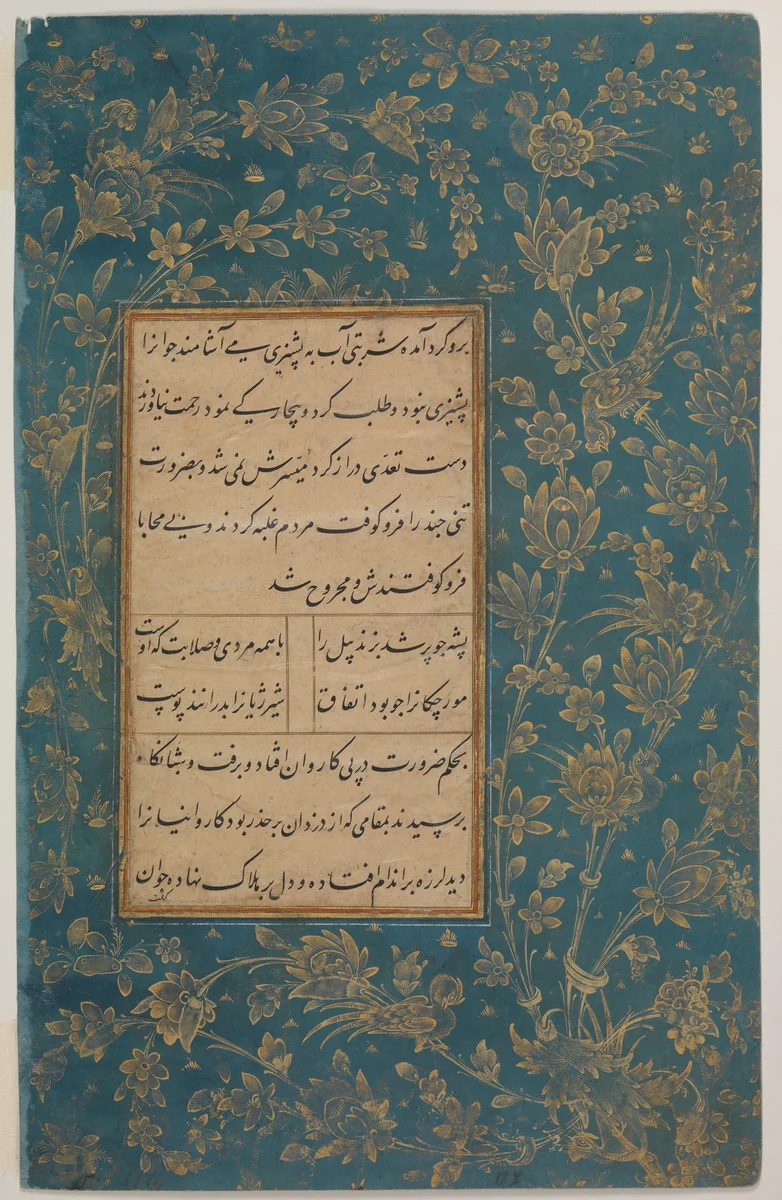 برو گرد آمده شربتی آب به پشیزی می آشامند جوانرا
پشیزی نبود و طلب کرد و بیچارگی نمود رحمت نیاوردند
دست تعدّی دراز کرد میّسرش نمی شد و بضرورت
تنی جند را فرو کوفت مردم غلبه کردند و بی محابا
فرو کوفتندش و مجروح شد
پشه جو پر شد بزند پیل را با همه مردی و صلابت که اوست
مورچکانرا جو بود اتفاق شیر ژیانرا بدرانند پوست
بحکم ضرورت در پی کاروان افتاد و برفت و شبانگاه
برسیدند بمقامی که از دزدان بر حذر بود کاروانیانرا
دید لرزه بر اندام افتاده و دل بر هلاک نهاده جوان
گفت